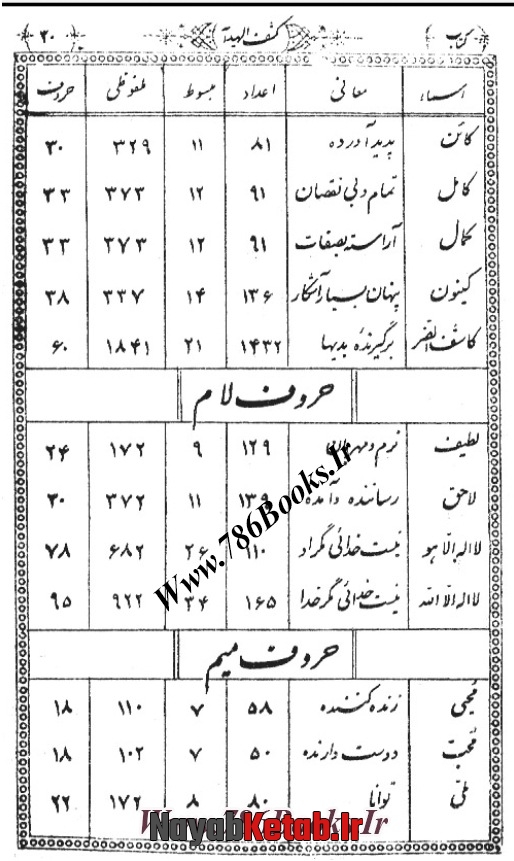 کتاب کشف الهدآ ۲۰
اسماء معانی اعداد مبسوط ملفوظی حروف
کائن پدید آورده ۸۱ ۱۱ ۳۲۹ ۳۰
کامل تمام و بی نقصان ۹۱ ۱۲ ۳۷۳ ۳۳
کمال آراسته بصفات ۹۱ ۱۲ ۳۷۳ ۳۳
کینون پنهان بسیار آشکار ۱۳۶ ۱۴ ۳۳۷ ۳۸
کاشف الضر برگیرنده بدیها ۱۴۳۲ ۲۱ ۱۸۴۱ ۶۰
حروف لام
لطیف نرم و مهربان ۱۲۹ ۹ ۱۷۲ ۲۴
لاحق رساننده و آمده ۱۳۹ ۱۱ ۳۷۲ ۳۰
لا اله الا هو نیست خدائی مگر او ۱۱۰ ۲۶ ۶۸۲ ۷۸
لا اله الّا الله نیست خدائی مگر خدا ۱۶۵ ۳۴ ۹۲۲ ۹۵
حروف میم
مُحیی زنده کننده ۵۸ ۷ ۱۱۰ ۱۸
مُحبّ دوست دارنده ۵۰ ۷ ۱۰۲ ۱۸
ملیّ توانا ۸۰ ۸ ۱۷۲ ۲۲
Www.786Books.Ir
Www.786Books.Ir
NayabKetab.Ir